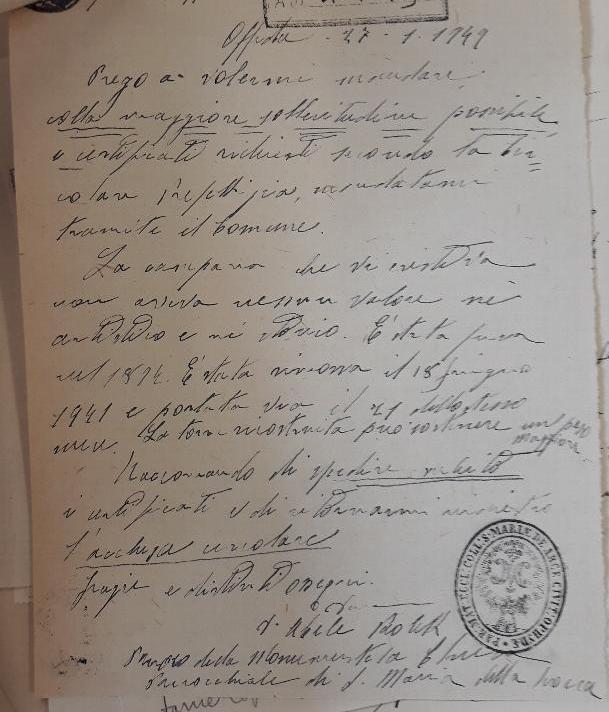 Offida - 27 - 1. 1949
Prego a volermi mandare
colla maggiore sollecitudine possibile
i certificati richiesti secondo la cir
colare Prefettizia, mandatami
tramite il Comune.
La campana che vi esisteva
non aveva nessun valore nè
artistico e nè storico. È stata fusa
nel 1874. È stata rimossa il 18 giugno
1941 e portata via il 21 dello stesso
mese. La torre costruita può sostenere un peso
maggiore
Raccomando di spedire subito
i certificati e di ritornarmi
l'acclusa circolare
Grazie e distinti ossequi.
D. Abele
della Monumentale Chiesa
Parrocchiale di S. Maria della Rocca
PAR. MATR. ET COLL. S. MARIAE DE ARCE CIVIT. OPHIDAE